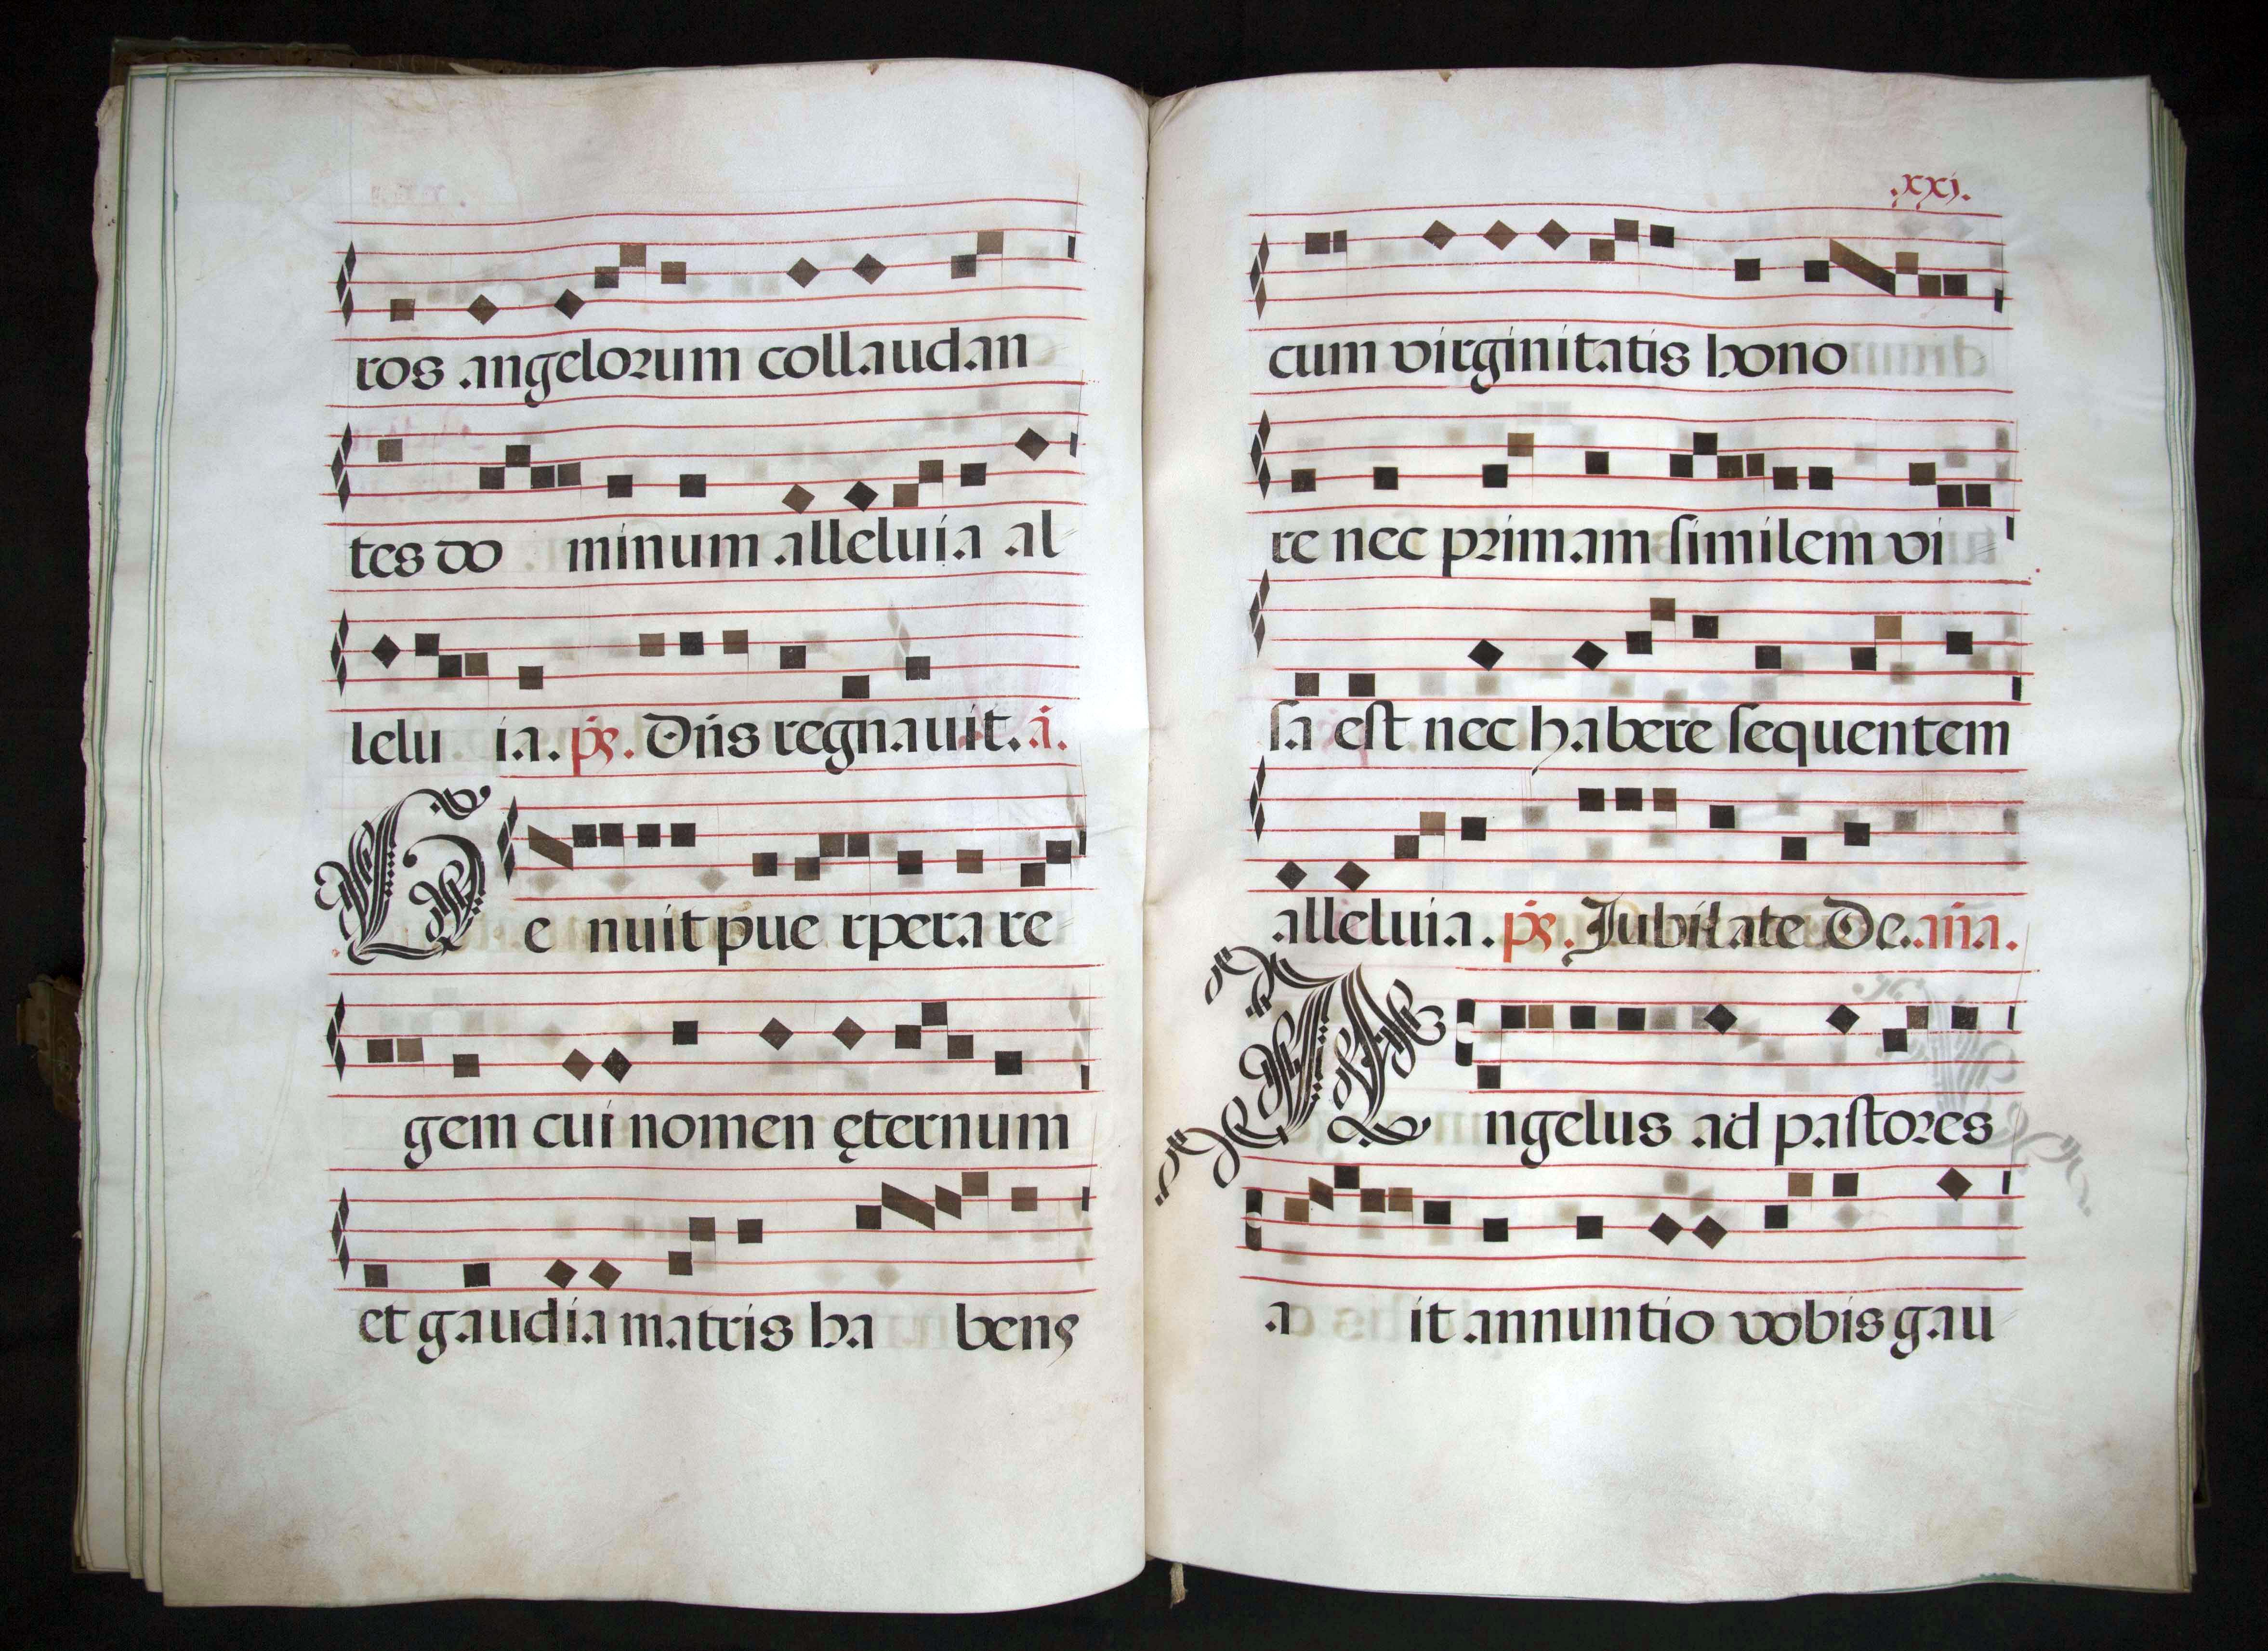 ros angelorum collaudan
tes do minum alleluia al
lelu ia. ps. Dñs regnauit. ã.
Ge nuit pue rpera re
gem cui nomen ęternum
et gaudia matris ha bens
.xxj.
cum virginitatis hono
re nec primam ſimilem vi
ſa eſt nec habere ſequentem
alleluia. ps. Jubilate De. aña.
Angelus ad paſtores
a it annuntio vobis gau